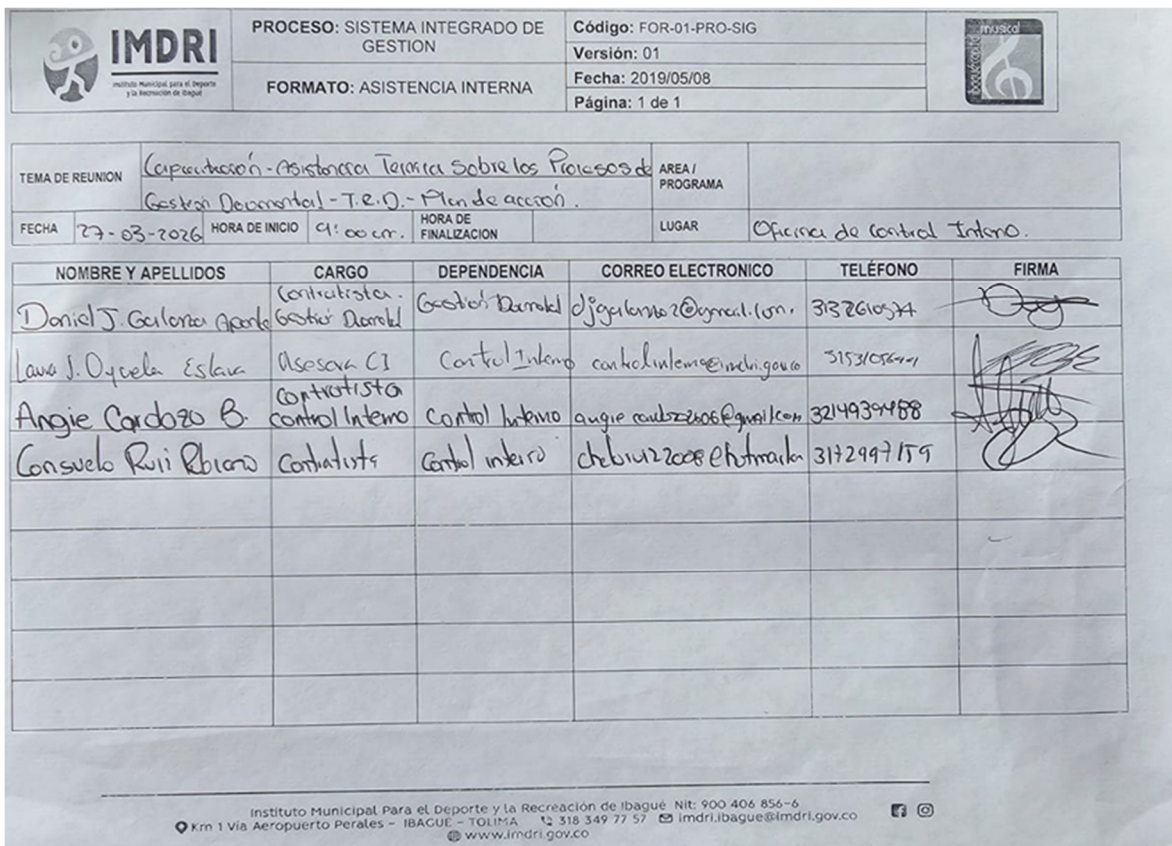 IMDRI
Instituto Municipal para el Deporte
y la Recreación de Ibagué
PROCESO: SISTEMA INTEGRADO DE
GESTION
FORMATO: ASISTENCIA INTERNA
Código: FOR-01-PRO-SIG
Versión: 01
Fecha: 2019/05/08
Página: 1 de 1
musical
TEMA DE REUNION
Capacitación - Asistencia Tecnica Sobre los Procesos de
Gestión Documental - T.R.D. - Plan de acción.
AREA /
PROGRAMA
FECHA 27-03-2026 HORA DE INICIO 9:00 am. HORA DE
FINALIZACION
LUGAR Oficina de Control Interno.
NOMBRE Y APELLIDOS CARGO DEPENDENCIA CORREO ELECTRONICO TELÉFONO FIRMA
Contratista.
Daniel J. Galarza Aponte Gestión Documental Gestión Documental
Laura J. Oyuela Eslava Asesora CI Control Interno controlinterno@imdri.gov.co
Contratista
Angie Cardozo B. Control Interno Control Interno 3214939488
Consuelo Contratista Control interno 3172997159
Instituto Municipal Para el Deporte y la Recreación de Ibagué Nit: 900 406 856-6
Km 1 Vía Aeropuerto Perales - IBAGUE - TOLIMA 318 349 77 57 imdri.ibague@imdri.gov.co
www.imdri.gov.co